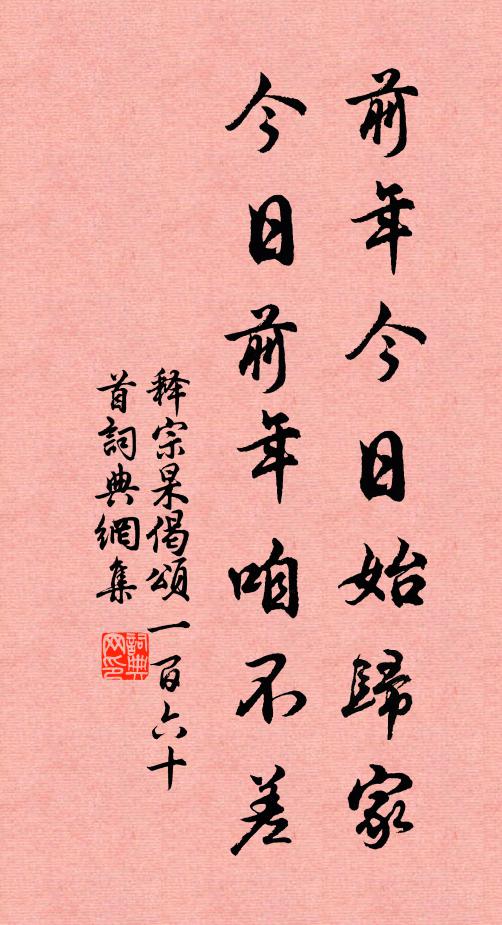 前年今日始歸家
今日前年咱不差
释宗杲偈頌一百六十
首詞典網集
詞典
网印